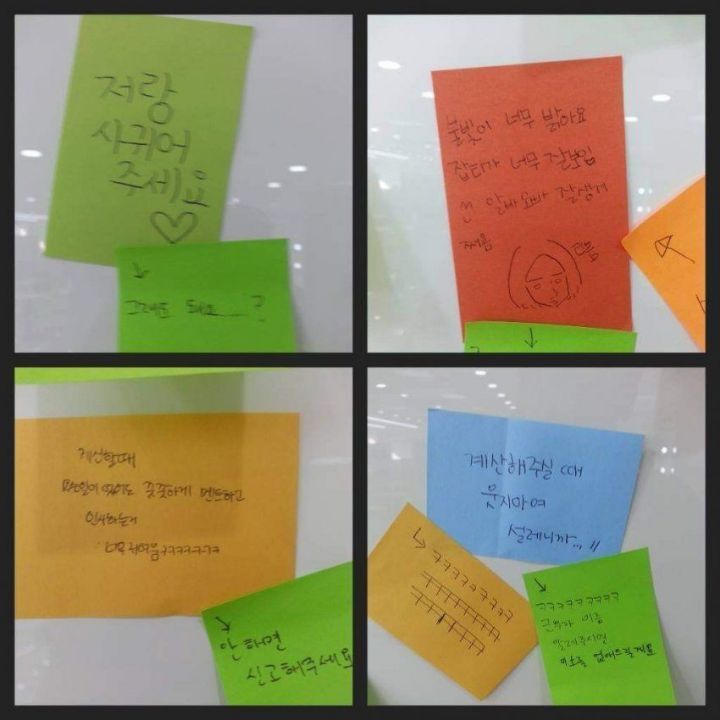 저랑
사귀어
주세요
그래도 돼요....?
불빛이 너무 밝아요
잡티가 너무 잘보임
쓴 알바오빠가 잘생겨
계산할때
꿋꿋하게 멘트하고
인사하는거
너무 귀여움ㅋㅋㅋㅋㅋㅋ
안 하면
신고해주세요
계산해주실 때
웃지마여
설레니까...!!
ㅋㅋㅋㅋㅋㅋㅋㅋ
ㅋㅋㅋㅋㅋㅋㅋ
ㅋㅋㅋㅋㅋㅋ
ㅋㅋㅋㅋㅋㅋㅋㅋ
근무자 이름
알려주시면
미소를 없애드릴게요